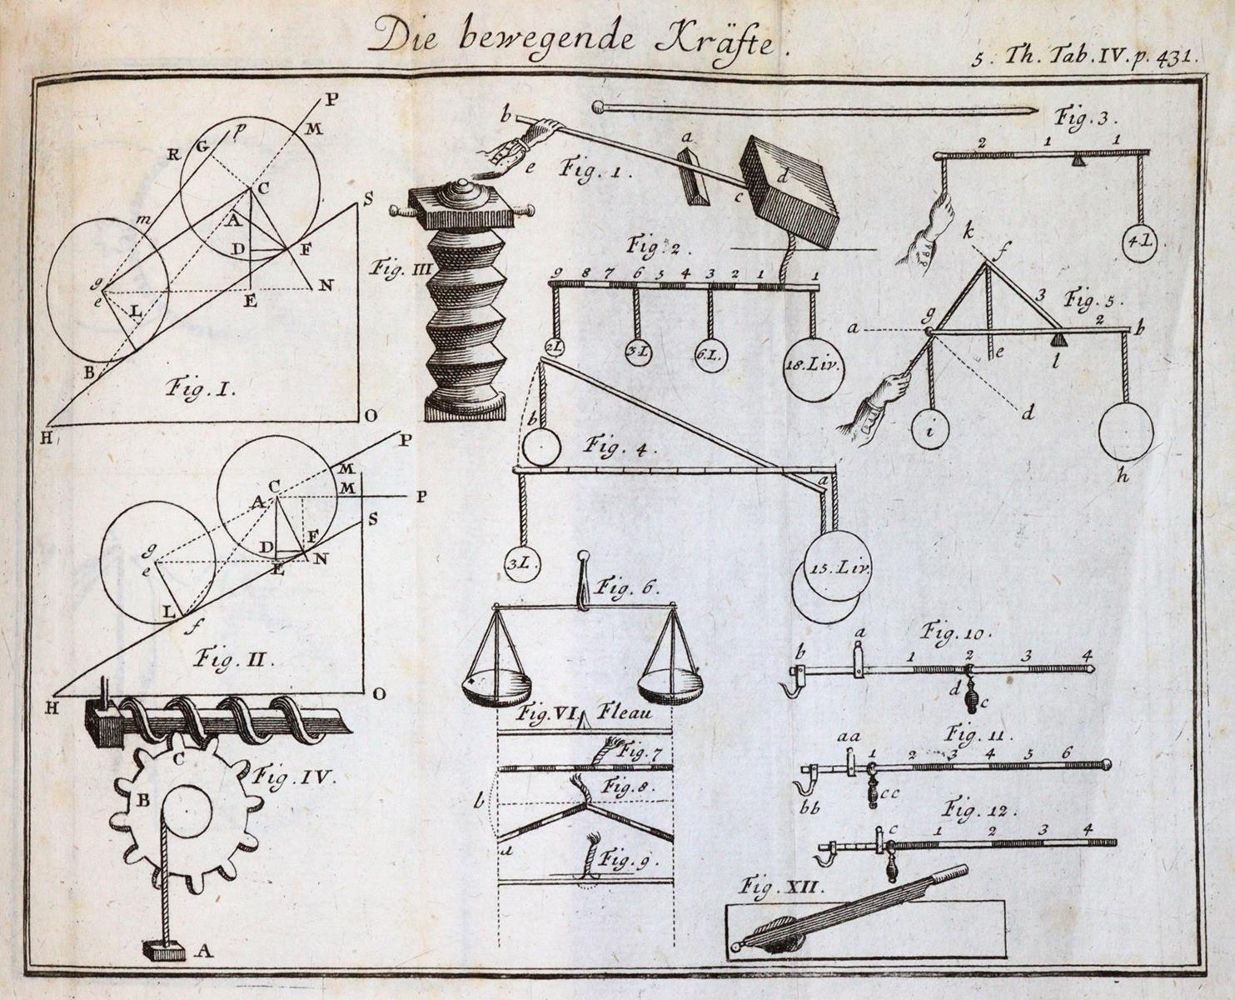 Die bewegende Kräfte.
5. Th. Tab. IV. p. 431.
P
M
p
G
R
C
S
m
A
D
F
g
e
E
N
L
B
Fig. I.
H
O
b
e
Fig. 1.
a
c
d
Fig. III
Fig. 3.
2 1 1
4L
Fig. 2.
9 8 7 6 5 4 3 2 1 1
2L
3L
6L.
18. Liv.
k
f
3
Fig. 5.
a
g
2
b
e
l
d
i
h
b
Fig. 4.
3L.
15. Liv.
P
M
C
A
M
P
S
g
D
F
e
E
N
L
f
Fig. II.
H
O
Fig. 6.
Fig. VI. Fleau
Fig. 7
Fig. 8.
b
a
Fig. 9.
Fig. IV.
C
B
A
Fig. 10.
a
b
1 2 3 4
d
c
Fig. 11.
aa
1 2 3 4 5 6
bb
cc
Fig. 12.
c
1 2 3 4
Fig. XII.